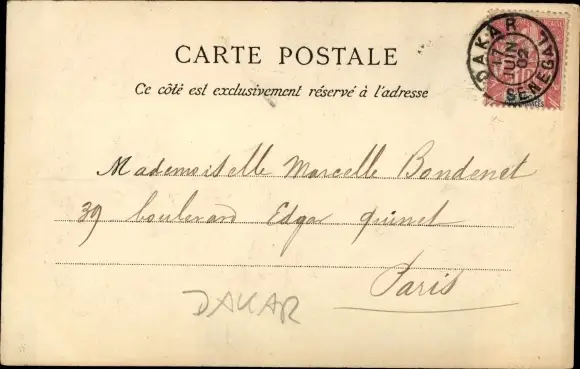 CARTE POSTALE
Ce côté est exclusivement réservé à l'adresse
DAKAR
17
JUIN
02
SENEGAL
10
Mademoiselle Marcelle Bondenet
39 boulevard Edgar Quinet
Paris
DAKAR